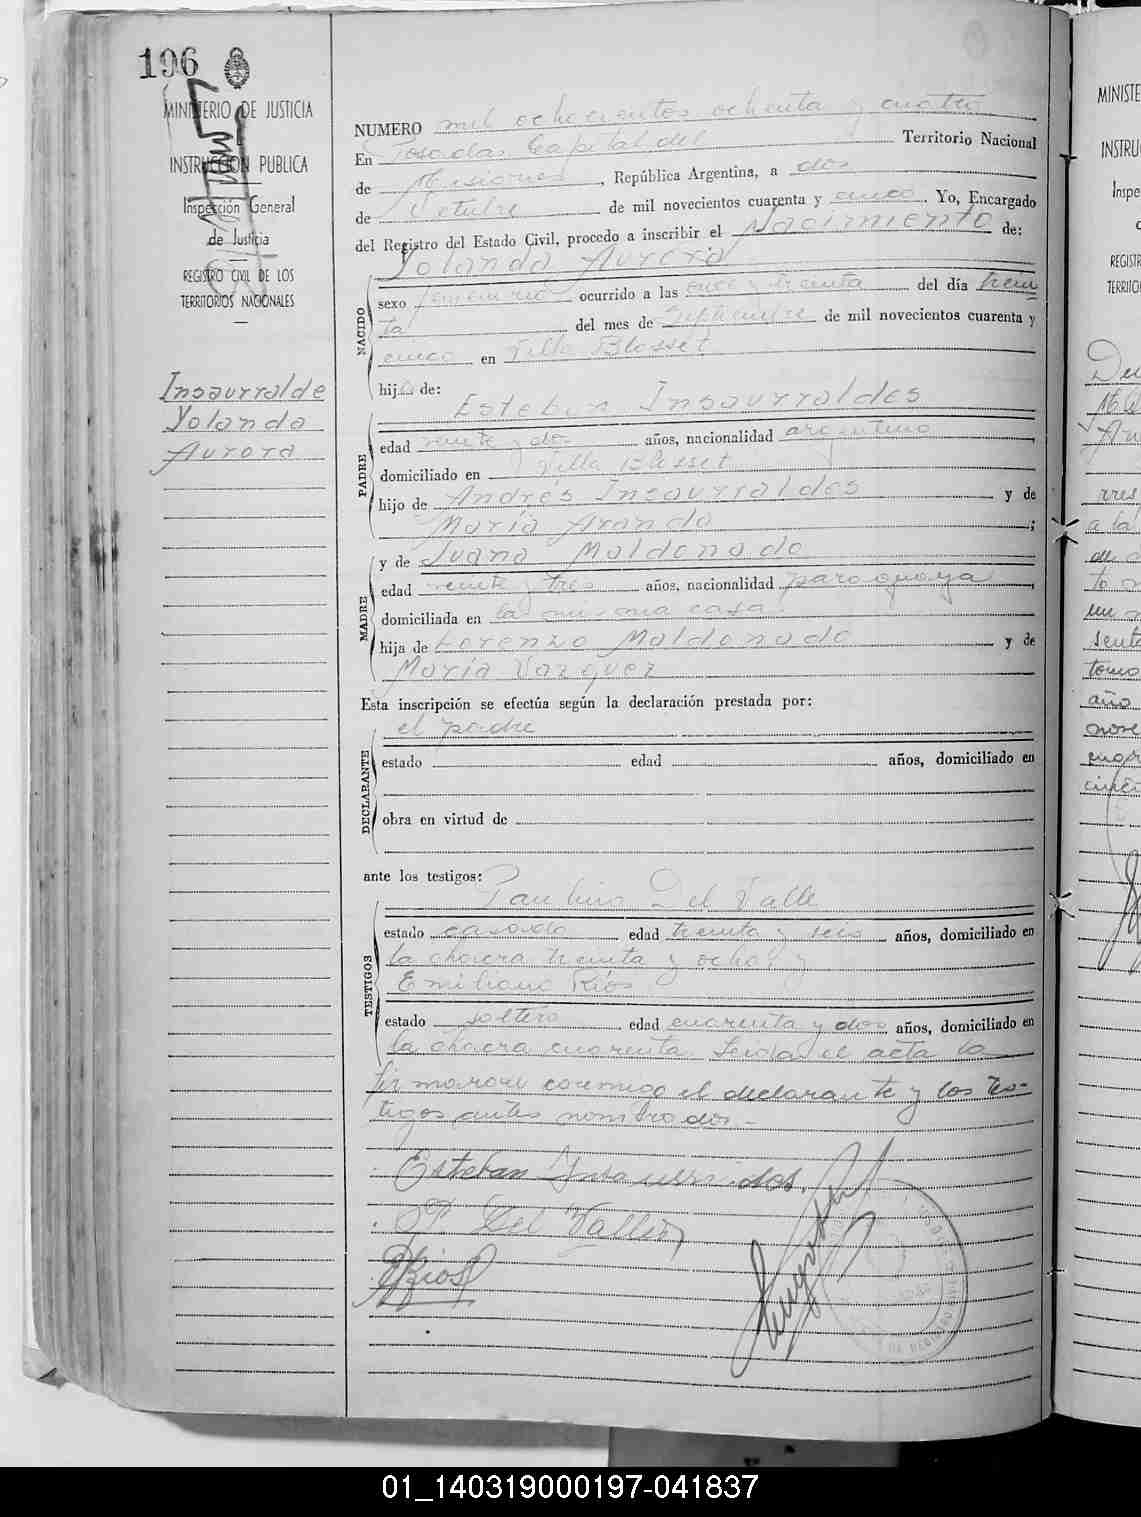 196
MINISTERIO DE JUSTICIA
E
INSTRUCCION PUBLICA
Inspección General
de Justicia
REGISTRO CIVIL DE LOS
TERRITORIOS NACIONALES
Insaurralde
Yolanda
Aurora
NUMERO mil ochocientos ochenta y cuatro
En Posadas Capital del Territorio Nacional
de Misiones, República Argentina, a dos
de Octubre de mil novecientos cuarenta y cinco. Yo, Encargado
del Registro del Estado Civil, procedo a inscribir el Nacimiento de:
Yolanda Aurora
NACIDO
sexo femenino ocurrido a las once y treinta del día trein
ta del mes de Septiembre de mil novecientos cuarenta y
cinco en Villa Blosset
hija de:
Esteban Insaurraldes
PADRE
edad veinte y dos años, nacionalidad argentino
domiciliado en Villa Blosset
hijo de Andrés Insaurraldes y de
María Aranda;
MADRE
y de Juana Maldonado
edad veinte y tres años, nacionalidad paraguaya,
domiciliada en la misma casa
hija de Lorenzo Maldonado y de
María Vazquez
Esta inscripción se efectúa según la declaración prestada por:
el padre
DECLARANTE
estado edad años, domiciliado en
obra en virtud de
ante los testigos:
Paulino Del Valle
TESTIGOS
estado casado edad treinta y seis años, domiciliado en
la chacra treinta y ocho, y
Emiliano Ríos
estado soltero edad cuarenta y dos años, domiciliado en
la chacra cuarenta. Leida el acta la
firmaron conmigo el declarante y los tes-
tigos antes nombrados.-
Esteban Insaurraldes.
P. Del Valle
E Rios
MINISTE
INSTRU
Inspe
REGISTR
TERRITO
a la
un
sent
tomo
año
nove
01_140319000197-041837